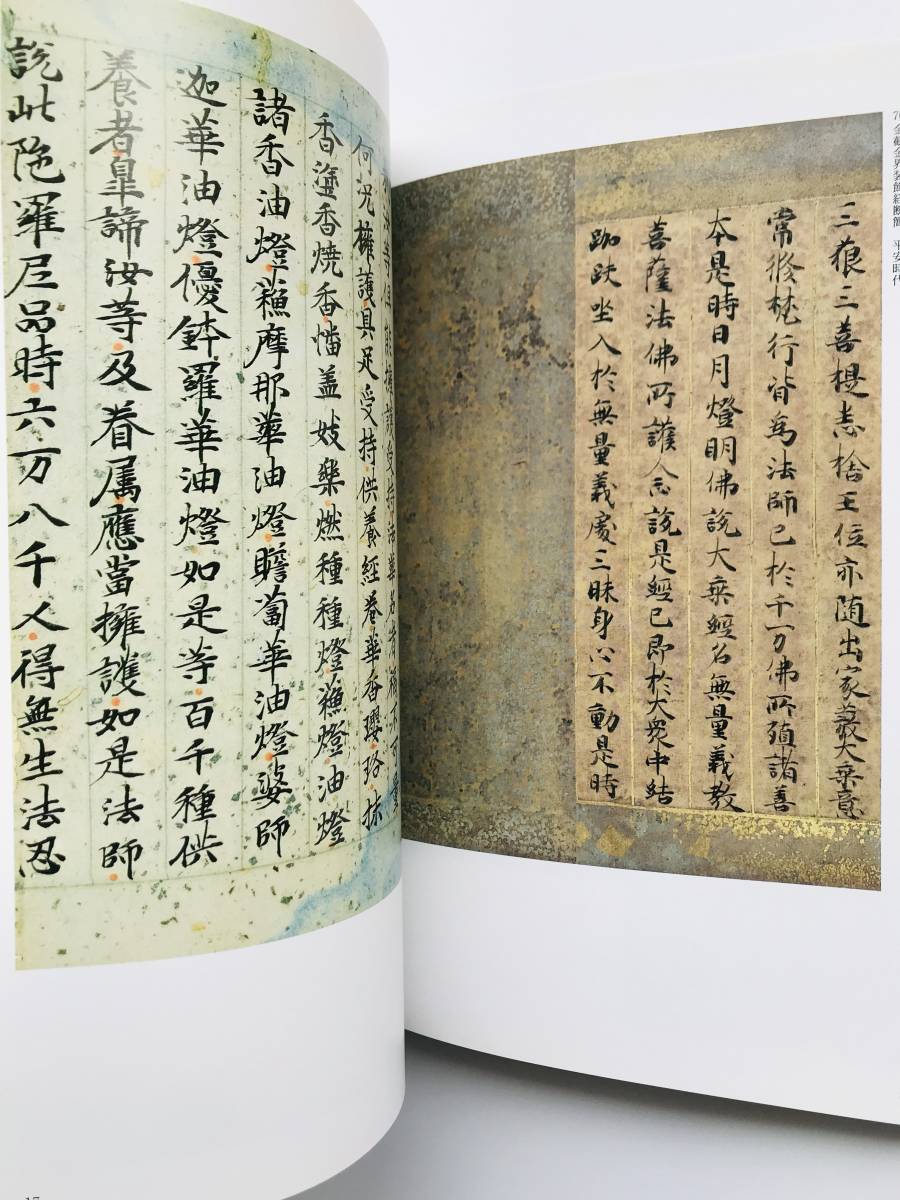 金銀界装飾経断簡 平安時代
三藐三菩提悉捨王位亦随出家發大乗意
常修梵行皆為法師已於千万佛所殖諸善
本是時日月燈明佛說大乗經名無量義教
菩薩法佛所護念說是經已即於大衆中結
跏趺坐入於無量義處三昧身心不動是時
等但能擁護受持法華名者福不可量
何況擁護具足受持供養經卷華香瓔珞抹
香塗香燒香幡盖妓樂燃種種燈蘓燈油燈
諸香油燈蘓摩那華油燈瞻蔔華油燈婆師
迦華油燈優鉢羅華油燈如是等百千種供
養者皐諦汝等及眷属應當擁護如是法師
說此陁羅尼品時六万八千人得無生法忍
17